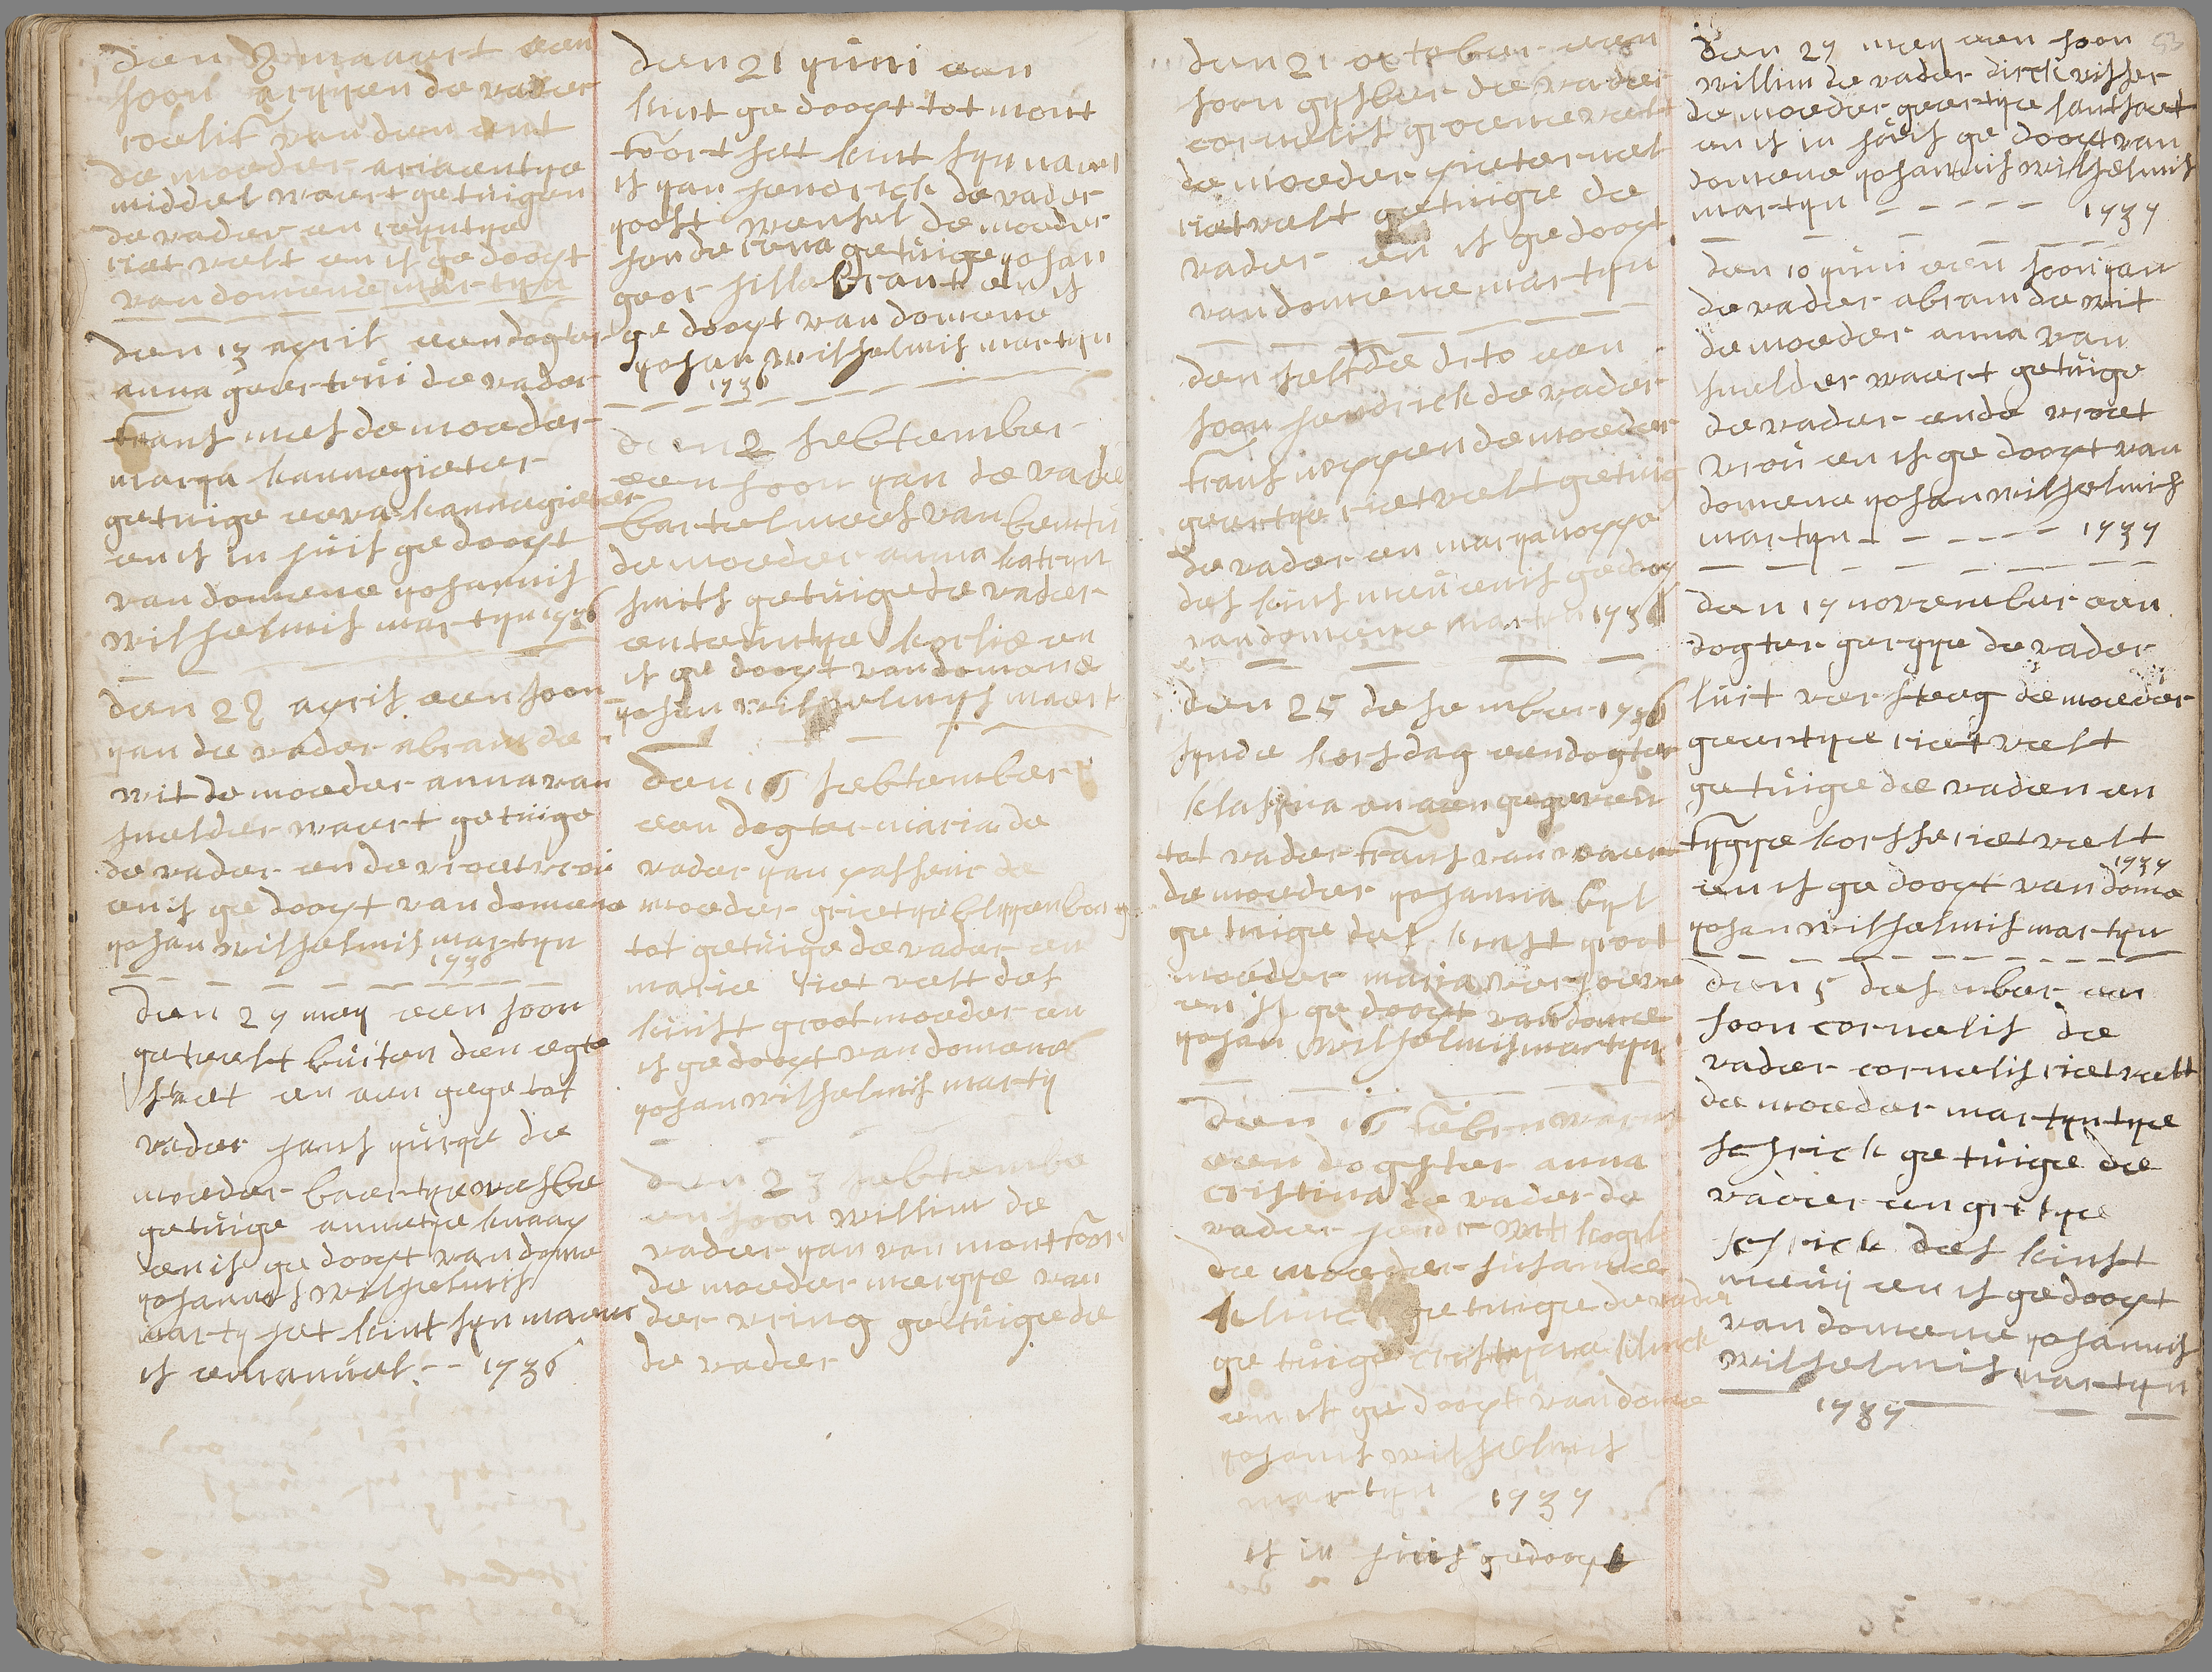 den 8 maaert een
soon aryyen de vader
roelif van den ent
de moeder ariaentye
middel waert getuigen
de vader en reyntye
riet velt en is gedoopt
van domene martyn
den 13 april een dogter
anna geertrui de vader
frans mes de moeder
marya kannegieter
getuige eeva kannegieter
en is in huis gedoopt
van domene yohannis
wilhelmis martyn 1736
den 28 april een soon
yan de vader abram de
wit de moeder anna van
suelder waert getuige
de vader en de vroetvrou
en is ge doopt van domene
yohan wilhelmis martyn
1736
den 27 mey een soon
geteelt buiten den egte
staet en aen gege tot
vader hans yurye de
moeder baertye
getuige annetye knaap
en is ge doopt van dome
yohannis wilhelmis
marty het kint syn naem
is emanuel -- 1736
den 21 yuni een
kint ge doopt tot mont
foort het kint syn naem
is yan hendrick de vader
yoost wensel de moeder
sonde rena getuige yohan
geor hillebrant en is
ge doopt van domene
yohan wilhelmis martyn
1736
den 2 sebtember
een soon yan de vader
bartelmees van bentu
de moeder anna katryn
smits getuige de vader
en teuntye korlie en
is ge doopt van domene
yohan wilhelmys maert
den 16 sebtember
een dogter maria de
vader yan passeur de
moeder grietye blyyenborg
tot getuige de vader en
marie riet velt des
kinst groot moeder en
is gedoopt van domene
yohan wilhelmis marty
den 23 sebtembe
en soon willim de
vader yan van montfoor
de moeder merrye van
der vring getuige de
de vader
den 21 october een
soon gysber de vader
cornelis groenevelt
de moeder pieternel
rietvelt getuige de
vader en is gedoopt
van domene martyn
den selfde dito een
soon hendrick de vader
frans noppen de moeder
geertye rietvelt getuig
de vader en marya noppe
des kins meu en is gedoop
van domene martyn 1736
den 25 desember 1736
synde korsdag een dogter
klasina en aen gegeven
tot vader frans van
de moeder yohanna byl
getuige des kinst groot
moeder maria verhoeve
en is ge doopt van dome
yohan wilhelmis martyn
den 16 febru
een dogster anna
cristina de vader de
vader
de moeder susanna
klinck getuige de vader
ge tuige cristyna klinck
en is ge doopt van dome
yohanis wilhelmis
martyn 1737
is in huis gedoopt
53
den 27 mey een soon
willim de vader dirck visser
de moeder geertye santhaet
en is in huis ge doopt van
domene yohannis wilhelmis
martyn ----- 1737
den 10 yuni een soon yan
de vader abram de wit
de moeder anna van
suelder waert getuige
de vader en de vroet
vrou en is ge doopt van
domene yohan wilhelmis
martyn ------ 1737
den 17 november een
dogter geryye de vader
luit ver steeg de moeder
geertye rietvelt
getuige de vaden en
tygye korsse rietvelt
1737
en is ge doopt van dome
yohan wilhelmis martyn
den 5 desember een
soon cornelis de
vader cornelis rietvelt
de moeder martyntye
schrick getuige de
vader en gritye
schrick des kinst
meuy en is gedoopt
van domene yohannis
wilhelmis martyn
1737